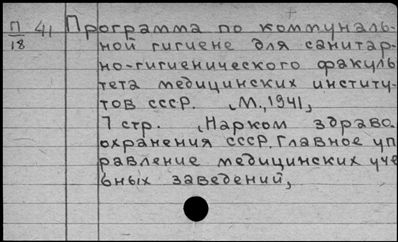 П/18 41 Программа по коммуналь-
ной гигиене для санитар-
но-гигиенического факуль
тета медицинских институ-
тов СССР. М., 1941,
7 стр. , Нарком здраво.
охранения СССР. Главное уп
равление медицинских уче
бных заведений,